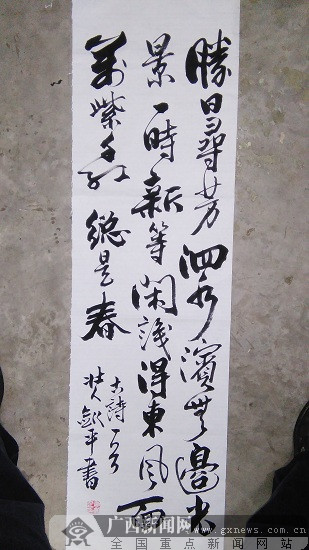 勝日尋芳泗水濱無邊光
景一時新等閑識得東風面
萬紫千紅總是春
古詩一首
壯人劍平書
广西新闻网
www.gxnews.com.cn
全国重点新闻网站